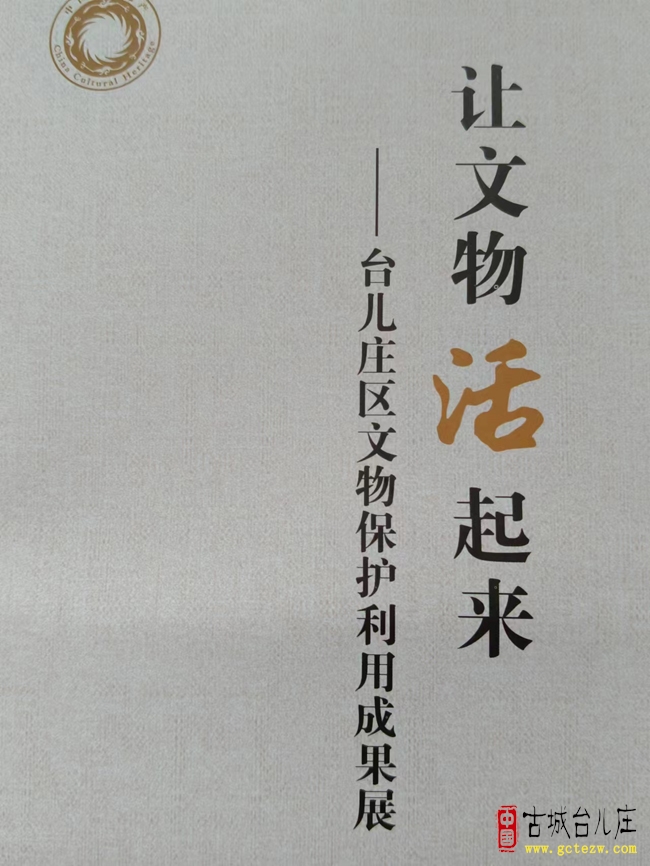 让文物活起来
——台儿庄区文物保护利用成果展
China Cultural Heritage
中国
古城台儿庄
www.gctezw.com